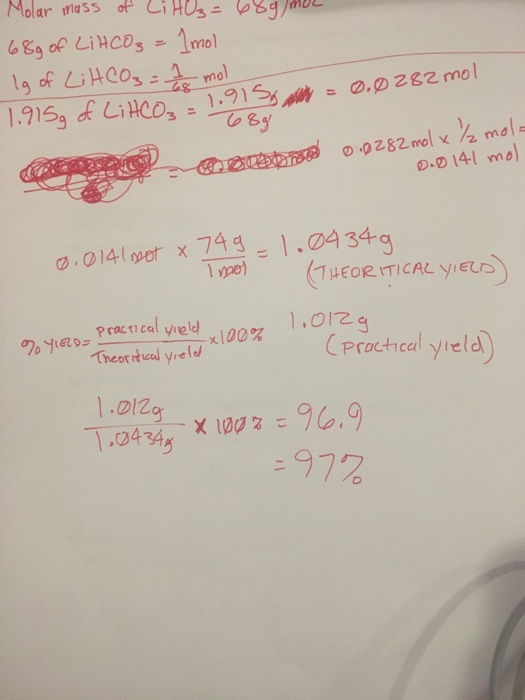 Molar mass of LiHO₃ = 68g/mol
68g of LiHCO₃ = 1mol
1g of LiHCO₃ = 1/68 mol
1.915g of LiHCO₃ = 1.915g/68g = 0.0282 mol
0.0282 mol x ½ mol =
0.0141 mol
0.0141 mol x 74g/1mol = 1.0434g
(THEORITICAL YIELD)
% YIELD = practical yield/Theoritical yield x 100%
1.012g
(practical yield)
1.012g/1.0434g x 100% = 96.9
= 97%